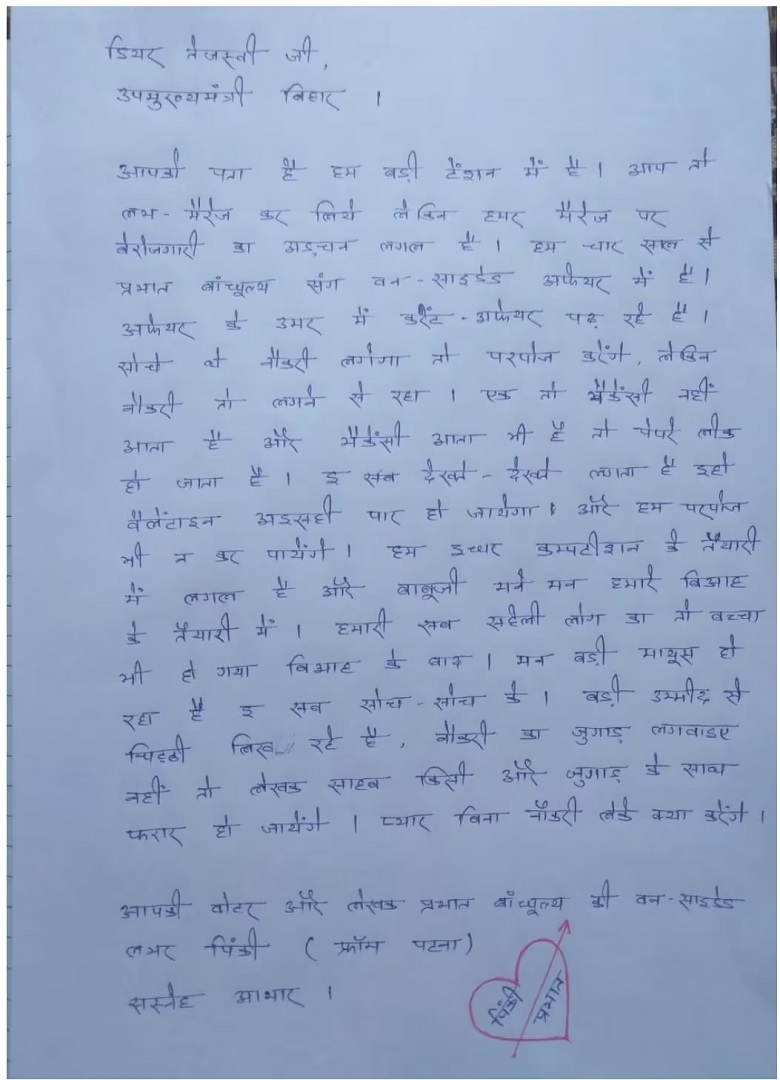 डियर तेजस्वी जी,
उपमुख्यमंत्री बिहार ।
आपको पता है हम बड़ी टेंशन में है । आप तो
लभ - मैरेज कर लिये लेकिन हमर मैरेज पर
बेरोजगारी का अड़चन लगल है । हम चार साल से
प्रभात बांधूल्य संग वन - साइडेड अफेयर में है ।
अफेयर के उमर में करेंट - अफेयर पढ़ रहे है ।
सोचे थे नौकरी लगेगा तो परपोज करेंगे, लेकिन
नौकरी तो लगने से रहा । एक तो भैकेंसी नहीं
आता है और भैकेंसी आता भी है तो पेपरे लीक
हो जाता है । इ सब देखते - देखते लगता है इहो
वैलेंटाइन अइसही पार हो जायेगा । और हम परपोज
भी न कर पायेंगे । हम इधर कम्पटीशन के तैयारी
में लगल है और बाबूजी मने मन हमारे बिआह
के तैयारी में । हमारी सब सहेली लोग का तो बच्चा
भी हो गया बिआह के बाद । मन बड़ी मायूस हो
रहा है इ सब सोच - सोच के । बड़ी उम्मीद से
चिट्ठी लिख रहे है, नौकरी का जुगाड़ लगवाइए
नहीं तो लेखक साहब किसी और जुगाड़ के साथ
फरार हो जायेंगे । प्यार बिना नौकरी लेके क्या करेंगे ।
आपकी वोटर और लेखक प्रभात बांधूल्य की वन - साइडेड
लभर पिंकी ( फ्रॉम पटना )
सस्नेह आभार ।
पिंकी प्रभात